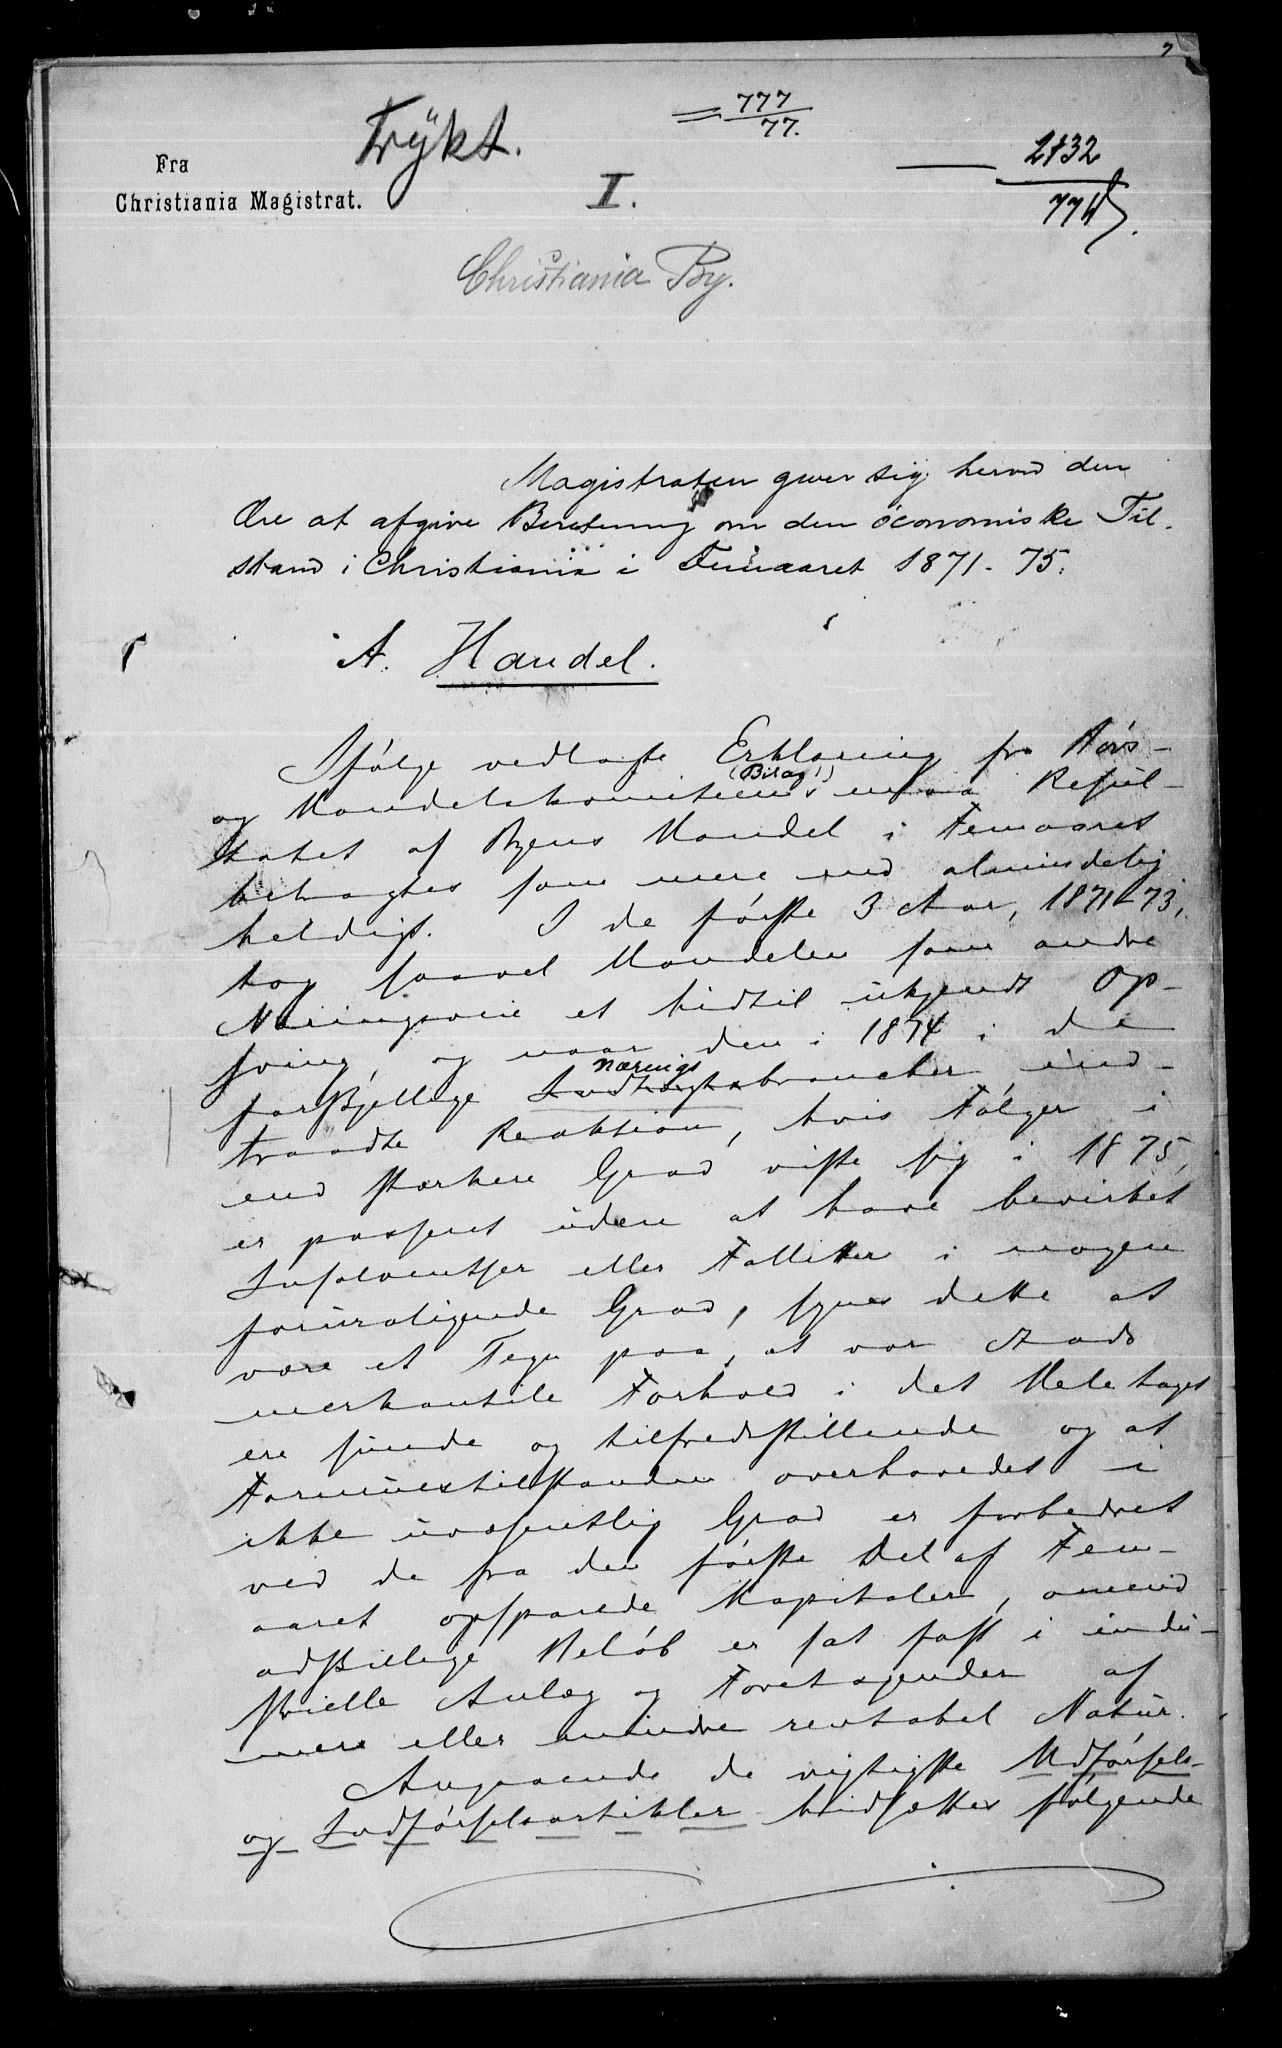 7
Trykt.
777
77.
2832
Fra
Christiania Magistrat.
I.
Christiania By.
Magistraten giver sig herved den
Ære at afgive Beretning om den öconomiske Til-
stand i Christiania i Femaaret 1871-75.
A. Handel.
Ifølge vedlagte Erklæring fra Børs-
(Bilag 1)
og Handelskomiteen maa Resul-
tatet af Byens Handel i Femaaret
betragtes som mere end almindelig
heldigt. I de første 3 Aar, 1871-73,
tog saavel Handelen som andre
Næringsveie et hidtil ukjendt Op-
sving, og naar den i 1874 i de
nærings
forskjellige Indtægtsbrancher ind-
traadte Reaktion, hvis Følger i
end stærkere Grad viste sig i 1875,
er passeret uden at have bevirket
Insolventser eller Fallitter i nogen
foruroligende Grad, synes dette at
være et Tegn paa, at vor Stads
merkantile Forhold i det Hele taget
ere sunde og tilfredsstillende og at
Formuestilstanden overhovedet i
ikke uvæsentlig Grad er forbedret
ved de fra den første Del af Fem-
aaret opsparede Kapitaler, omend
adskillige Beløb er sat fast i indu-
strielle Anlæg og Foretagender af
mere eller mindre rentabel Natur.
Angaaende de vigtigste Udførsels-
og Indførselsartikler hidsættes følgende